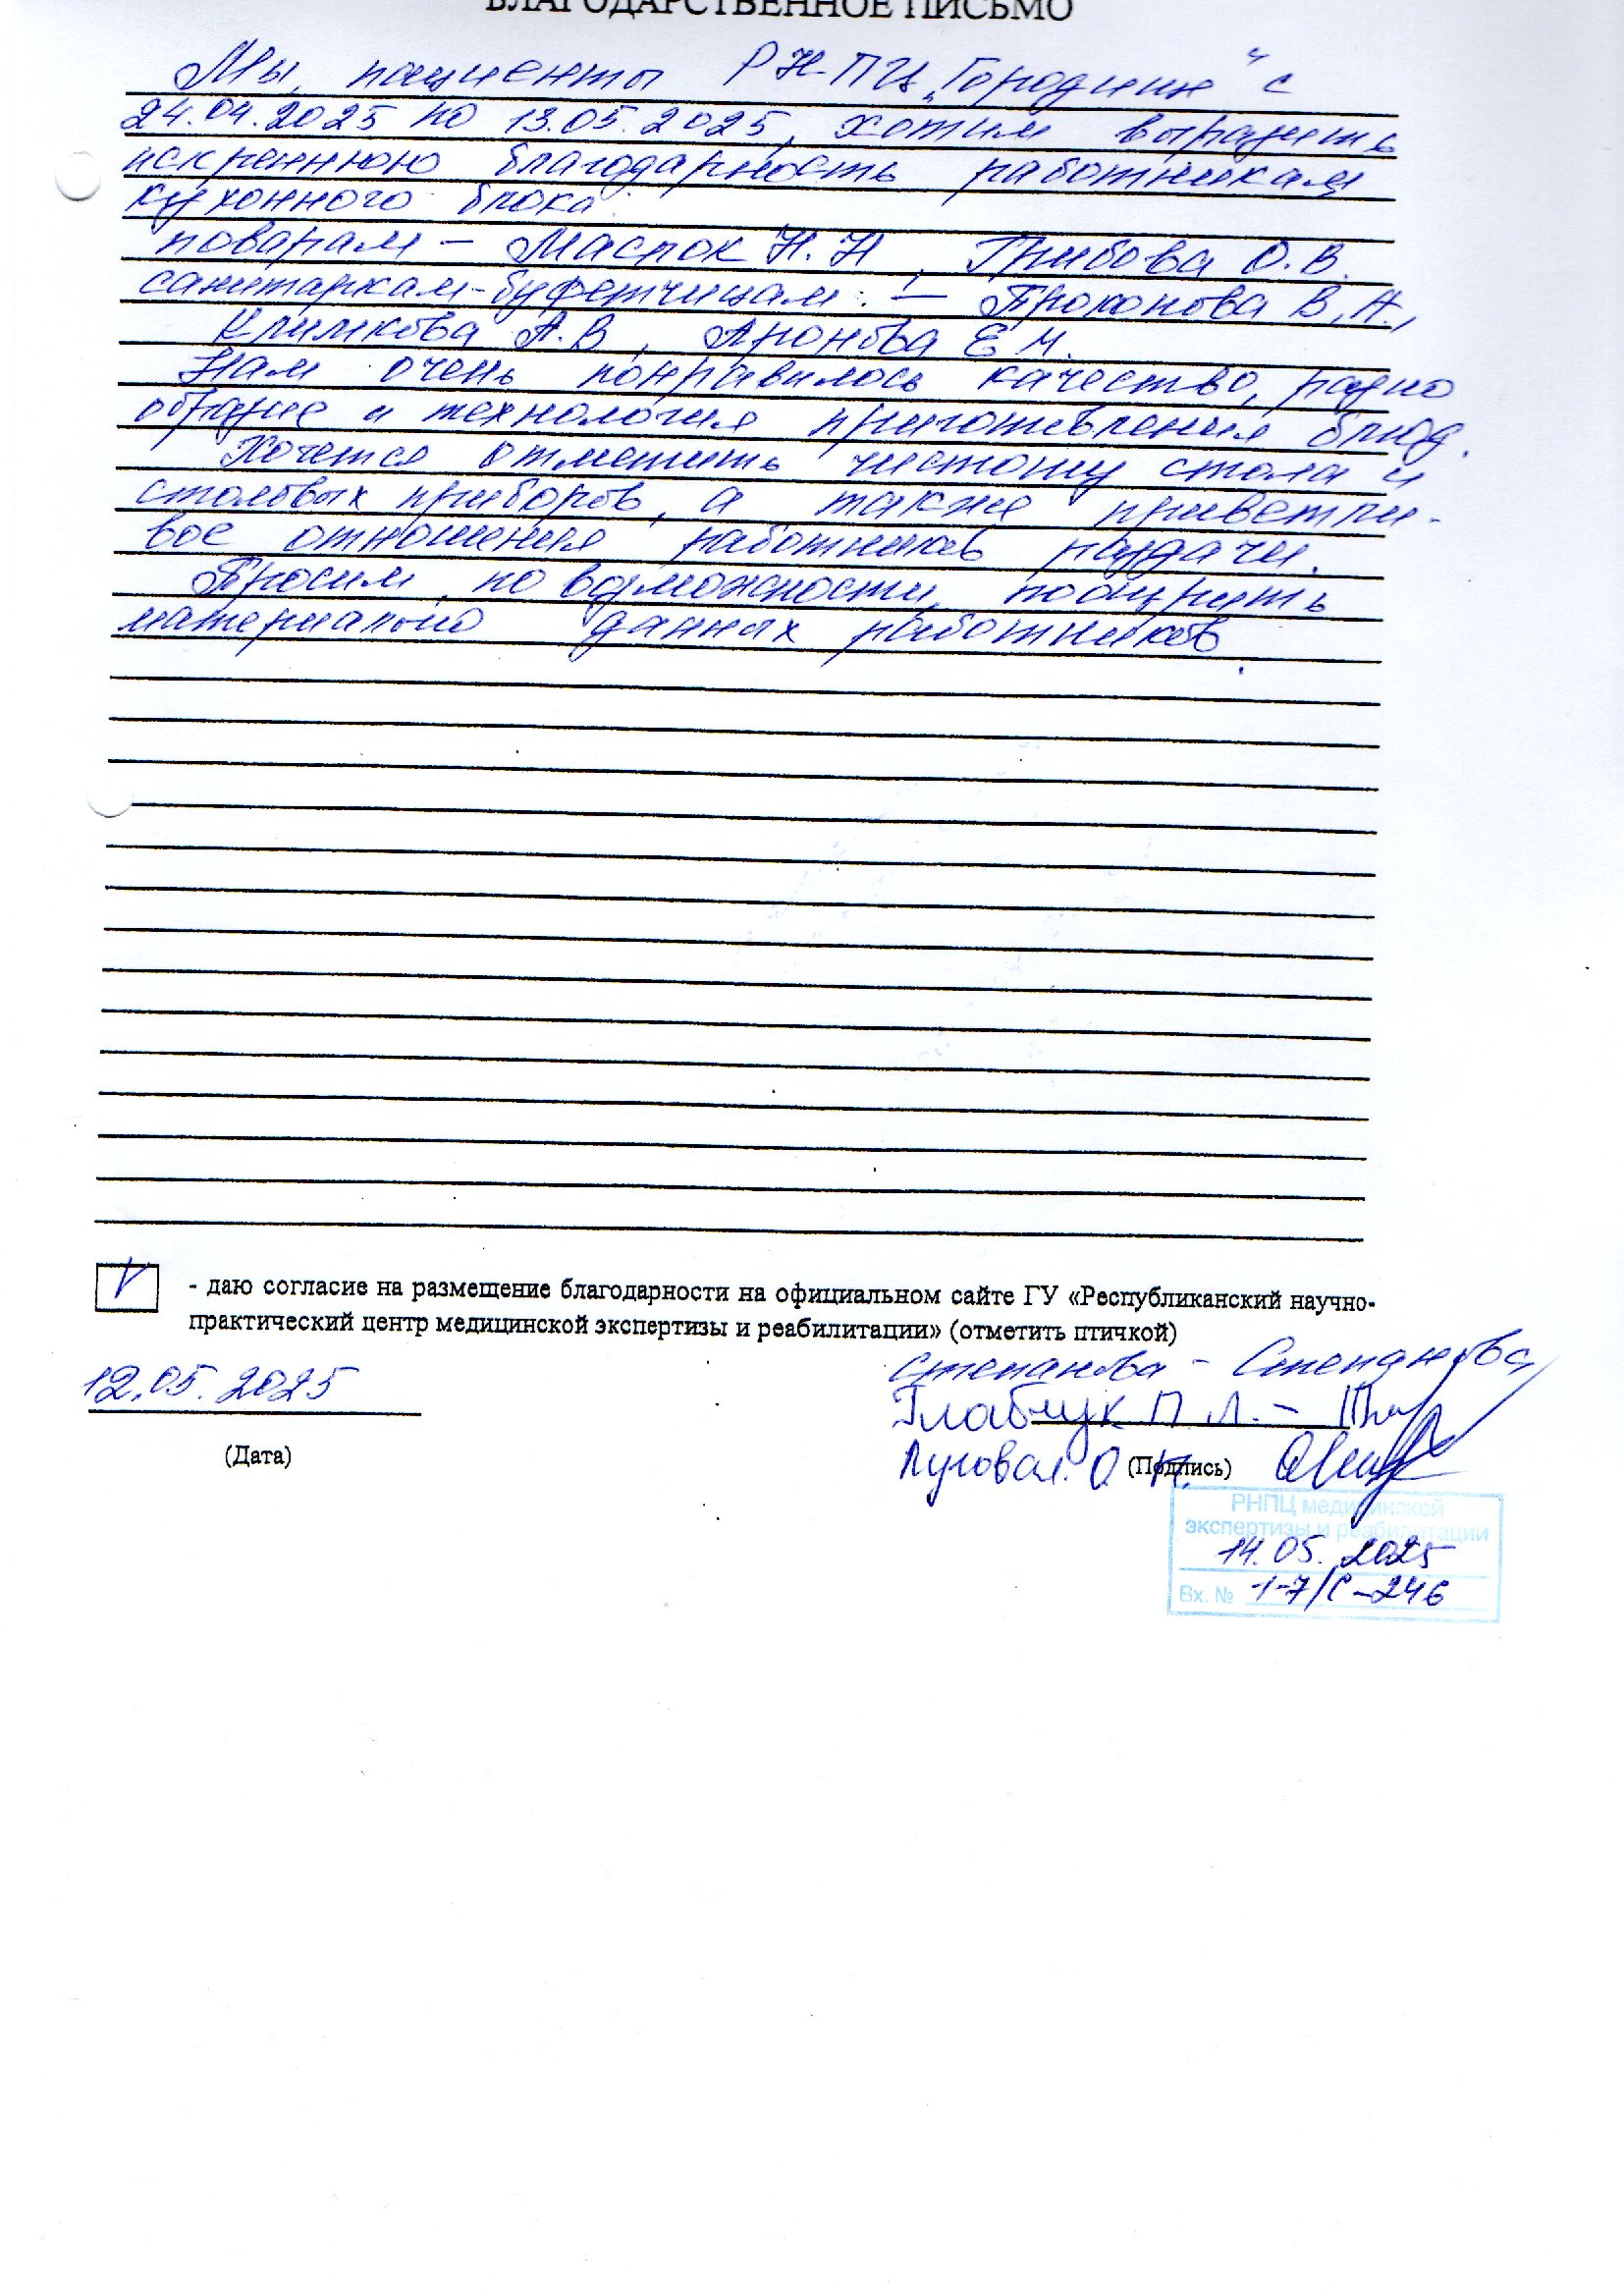 БЛАГОДАРСТВЕННОЕ ПИСЬМО
Мы, пациенты РНПЦ „Городище“ с
24.04.2025 по 13.05.2025, хотим выразить
искреннюю благодарность работникам
кухонного блока
поварам – Маслок Н.Н, Грибова О.В.
санитаркам-буфетчицам: – Прокопова В.А.,
Климкова А.В, Аронова Е М.
Нам очень понравилось качество, разно
образие и технология приготовления блюд.
Хочется отметить чистоту стола и
столовых приборов, а также приветли-
вое отношения работников раздачи.
Просим, по возможности, поощрить
материально данных работников.
V - даю согласие на размещение благодарности на официальном сайте ГУ «Республиканский научно-
практический центр медицинской экспертизы и реабилитации» (отметить птичкой)
12.05.2025
(Дата)
Степанова - Степанова
Глабчук П Л. -
Луговая. О. Н.
(Подпись)
РНПЦ медицинской
экспертизы и реабилитации
14.05.2025
Вх. № 1-7/С-246